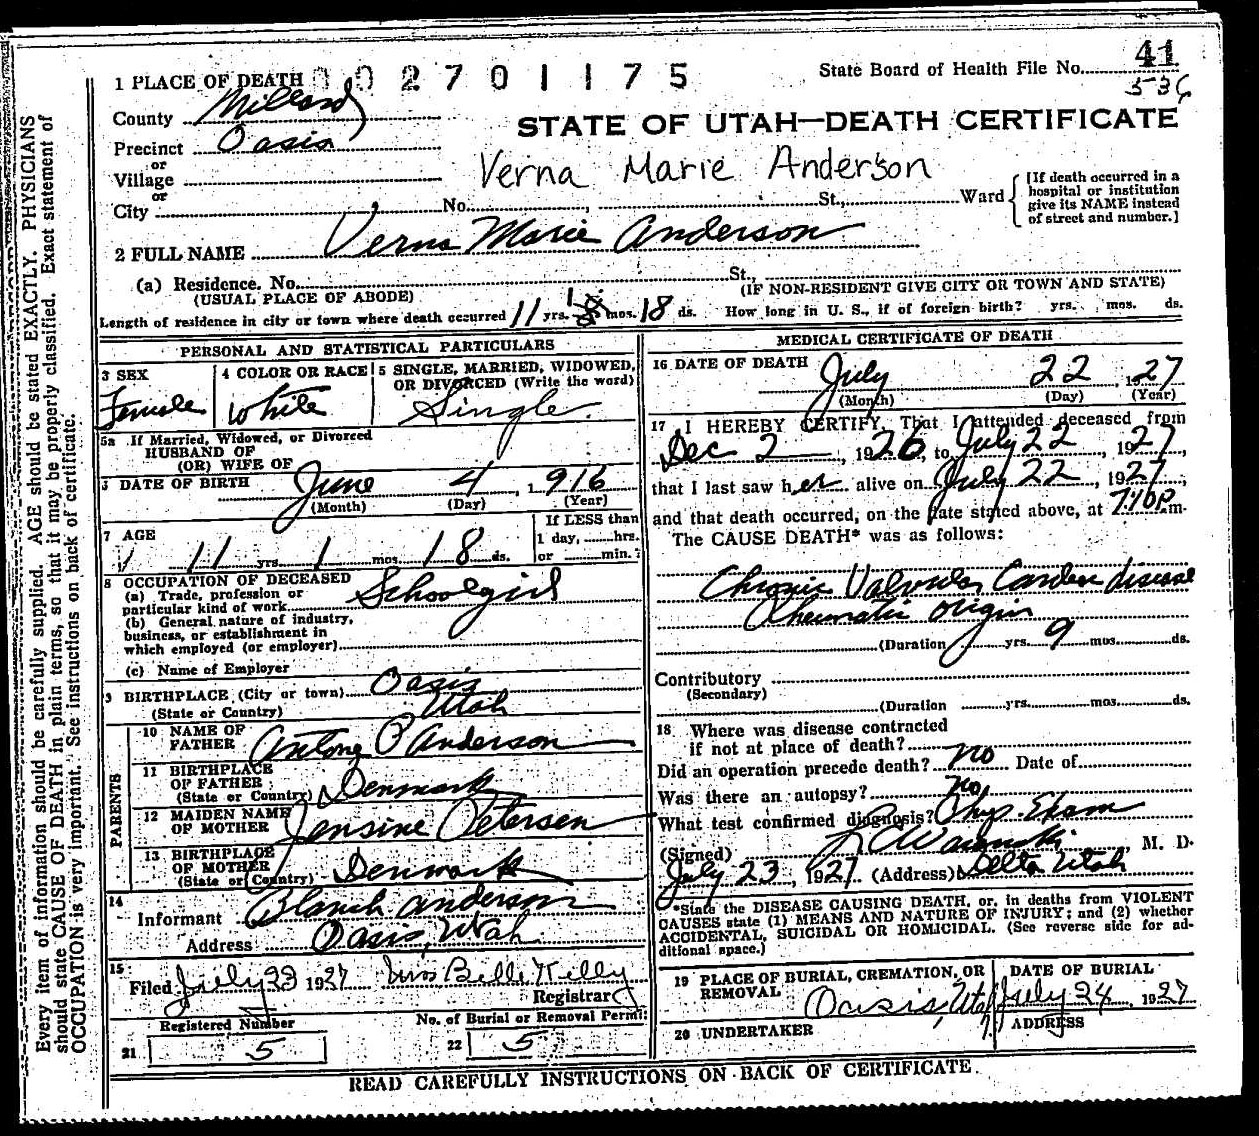 1 PLACE OF DEATH 002701175
State Board of Health File No. 41
536
County Millard
STATE OF UTAH—DEATH CERTIFICATE
Precinct Oasis
or
Village
Verna Marie Anderson
or
City No. , St., Ward
[If death occurred in a
hospital or institution
give its NAME instead
of street and number.]
2 FULL NAME Verna Marie Anderson
(a) Residence. No. St.,
(USUAL PLACE OF ABODE) (IF NON-RESIDENT GIVE CITY OR TOWN AND STATE)
Length of residence in city or town where death occurred 11 yrs. 1 mos. 18 ds. How long in U. S., if of foreign birth? yrs. mos. ds.
PERSONAL AND STATISTICAL PARTICULARS
3 SEX Female
4 COLOR OR RACE White
5 SINGLE, MARRIED, WIDOWED,
OR DIVORCED (Write the word)
Single
5a If Married, Widowed, or Divorced
HUSBAND OF
(OR) WIFE OF
DATE OF BIRTH June 4, 1916
(Month) (Day) (Year)
7 AGE
11 yrs. 1 mos. 18 ds.
If LESS than
1 day, hrs.
or min.?
8 OCCUPATION OF DECEASED
(a) Trade, profession or
particular kind of work Schoolgirl
(b) General nature of industry,
business, or establishment in
which employed (or employer)
(c) Name of Employer
9 BIRTHPLACE (City or town) Oasis
(State or Country) Utah
PARENTS
10 NAME OF
FATHER Antone P Anderson
11 BIRTHPLACE
OF FATHER
(State or Country) Denmark
12 MAIDEN NAME
OF MOTHER Jensine Petersen
13 BIRTHPLACE
OF MOTHER
(State or Country) Denmark
14
Informant Blanch Anderson
Address Oasis, Utah
15
Filed July 23 1927 Mrs Belle Kelly
Registrar
Registered Number
21 5
No. of Burial or Removal Permit
22 5
MEDICAL CERTIFICATE OF DEATH
16 DATE OF DEATH July 22, 1927
(Month) (Day) (Year)
17 I HEREBY CERTIFY, That I attended deceased from
Dec 2, 1926, to July 22, 1927,
that I last saw her alive on July 22, 1927,
and that death occurred, on the date stated above, at 7:10 P.m.
The CAUSE DEATH* was as follows:
Chronic Valvular Cardiac disease
Rheumatic origin
(Duration yrs. 9 mos. ds.
Contributory
(Secondary)
(Duration yrs. mos. ds.
18 Where was disease contracted
if not at place of death?
Did an operation precede death? no Date of
Was there an autopsy? no
What test confirmed diagnosis? Phys. Exam
(Signed) , M. D.
July 23, 1927 (Address) Delta Utah
*State the DISEASE CAUSING DEATH, or, in deaths from VIOLENT
CAUSES state (1) MEANS AND NATURE OF INJURY; and (2) whether
ACCIDENTAL, SUICIDAL OR HOMICIDAL. (See reverse side for ad-
ditional space.)
19 PLACE OF BURIAL, CREMATION, OR
REMOVAL
Oasis, Utah
DATE OF BURIAL
July 24, 1927
20 UNDERTAKER
ADDRESS
READ CAREFULLY INSTRUCTIONS ON BACK OF CERTIFICATE.
Every item of information should be carefully supplied. AGE should be stated EXACTLY. PHYSICIANS
should state CAUSE OF DEATH in plain terms, so that it may be properly classified. Exact statement of
OCCUPATION is very important. See instructions on back of certificate.